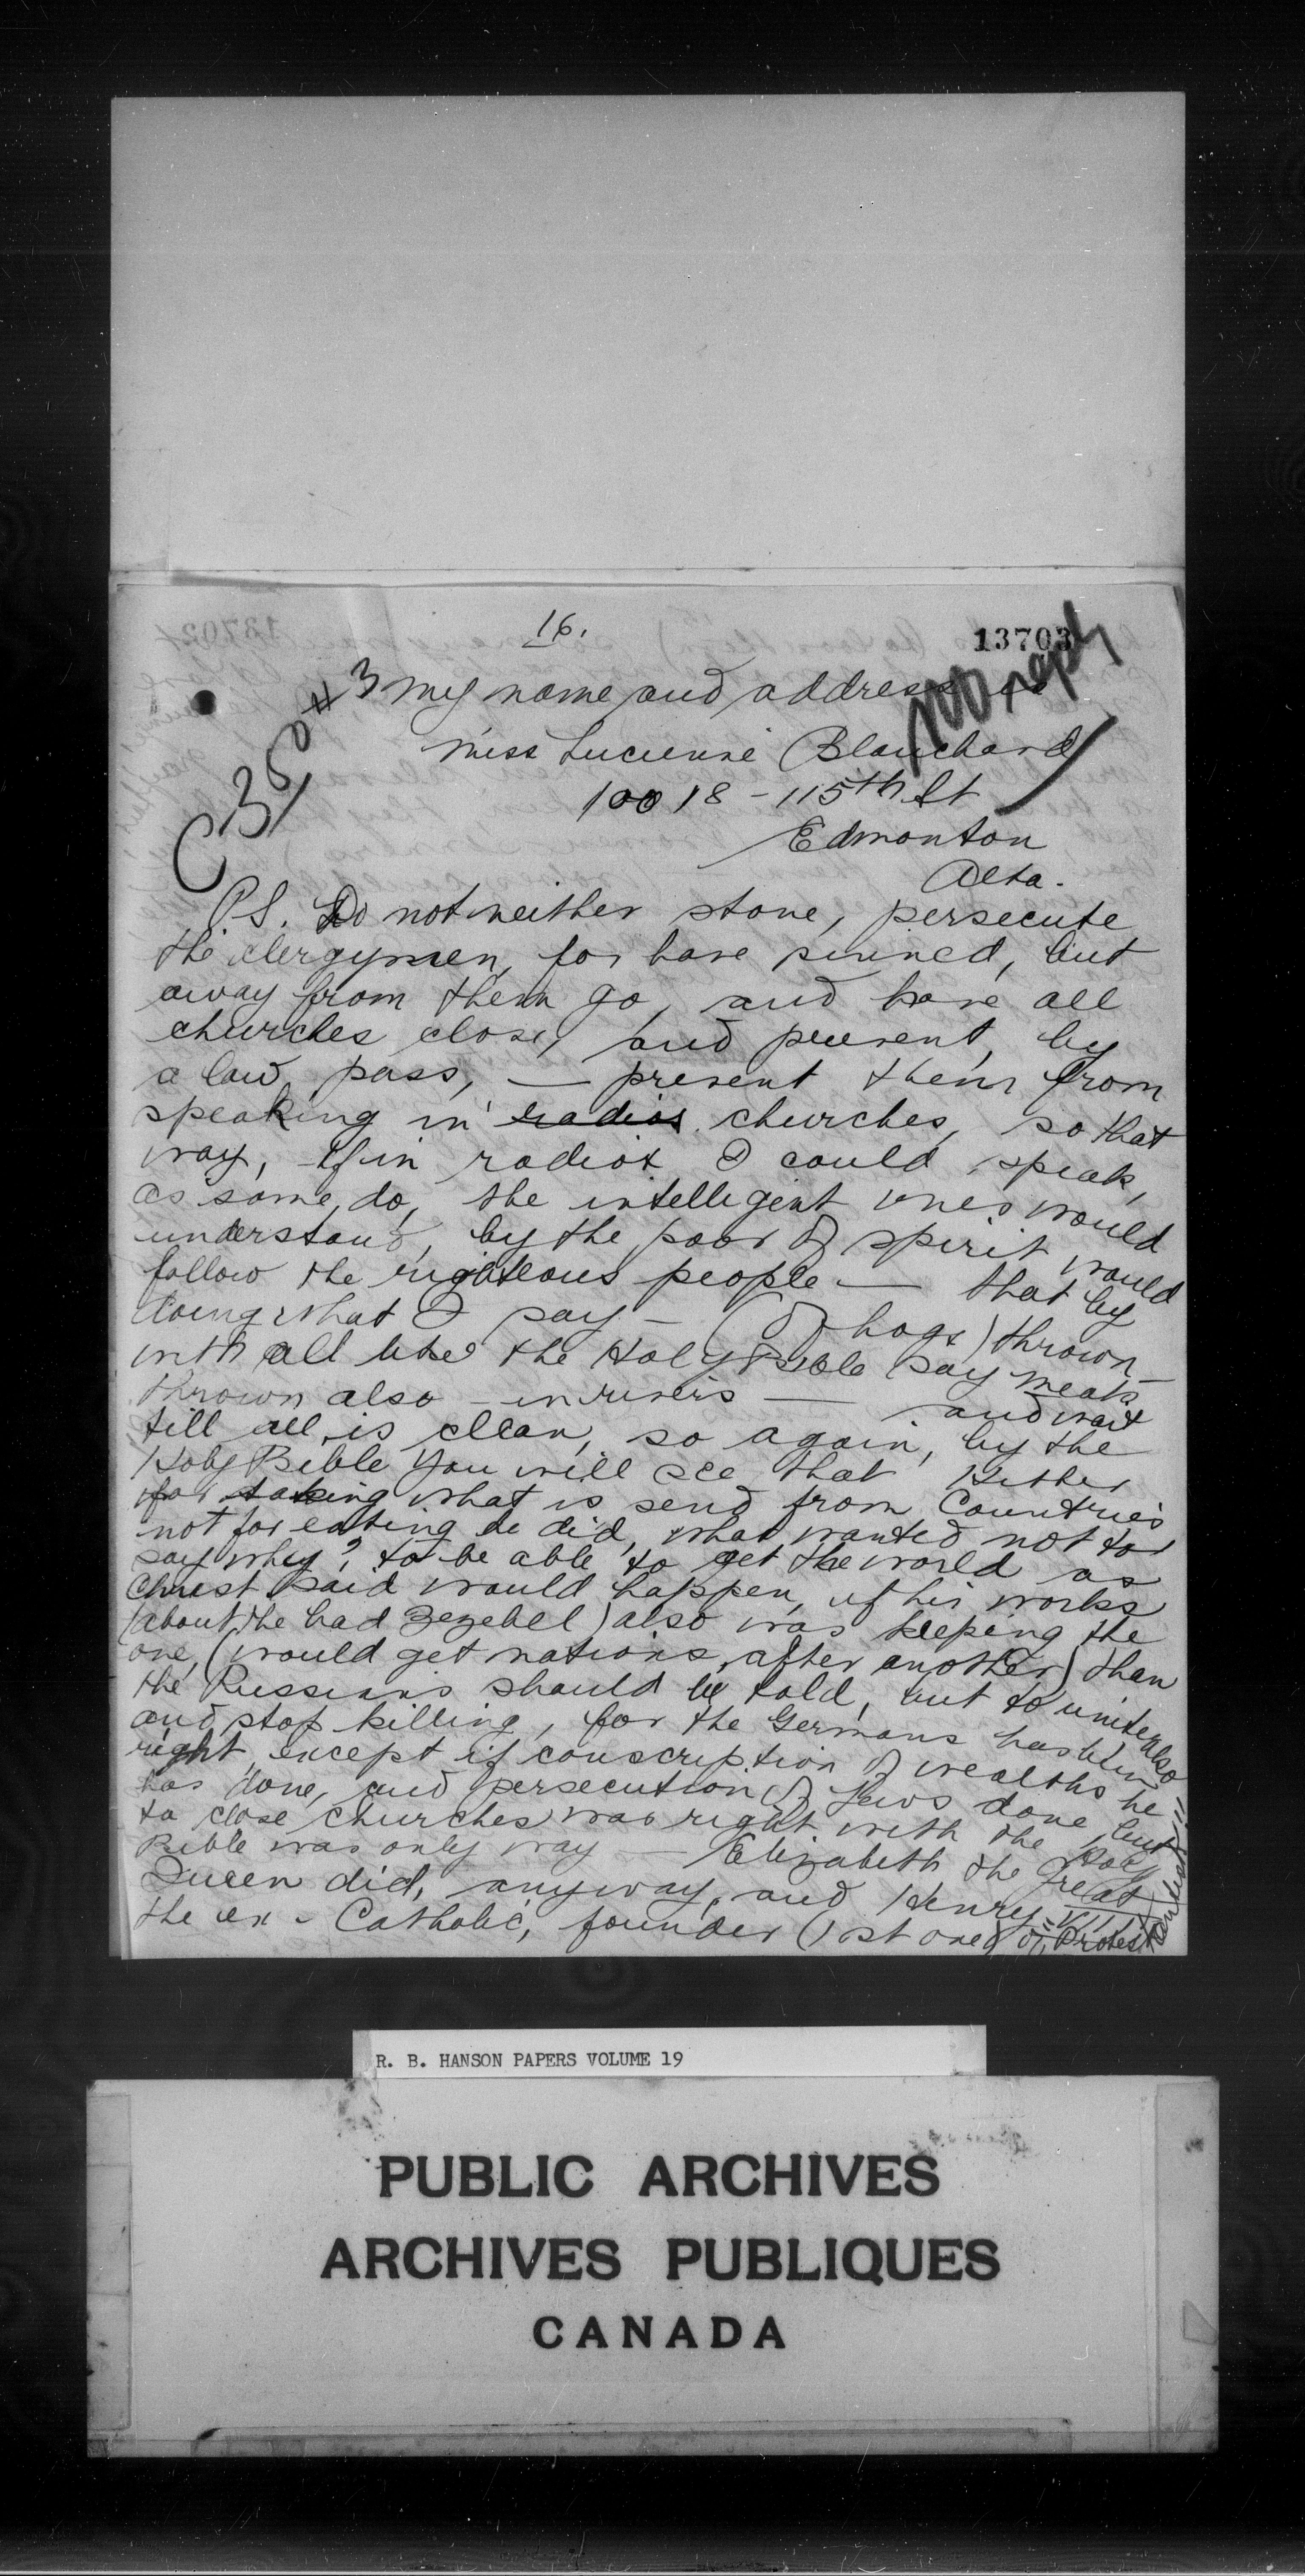 16.
13703
No reply
C-350
#3 my name and address is
Miss Lucienne Blanchard
10018 - 115th St
Edmonton
Alta.
P.S. Do not neither stone, persecute
the clergymen, for have sinned, but
away from them go, and have all
churches close, and prevent, by
a law pass, — prevent them from
speaking in radios churches, so that
way, if in radios I could speak,
as some do, the intelligent ones would
understand, by the poor of spirit would
follow the righteous people — that by
doing what I say — (of hogs) thrown
with all like the Holy Bible say meats
thrown also - in rivers — and wait
till all is clean, so again, by the
Holy Bible you will see that Hitler
for taking what is send from Countries
not for eating he did, what wanted not to
say why? to be able to get the world as
Christ said would happen, if his works
(about the bad Jezebel) also was keeping the
one, (would get nations, after another) than
the Russians should be told, but to unite
and stop killing, for the Germans has been also
right, except if conscription of wealths he
has done, and persecution of Jews done, but
to close churches was right with the Holy
Bible was only way — Elizabeth the Great
Queen did, anyway, and Henry VIII
the ex-Catholic, founder (1st one) of Protest
R. B. HANSON PAPERS VOLUME 19
PUBLIC ARCHIVES
ARCHIVES PUBLIQUES
CANADA